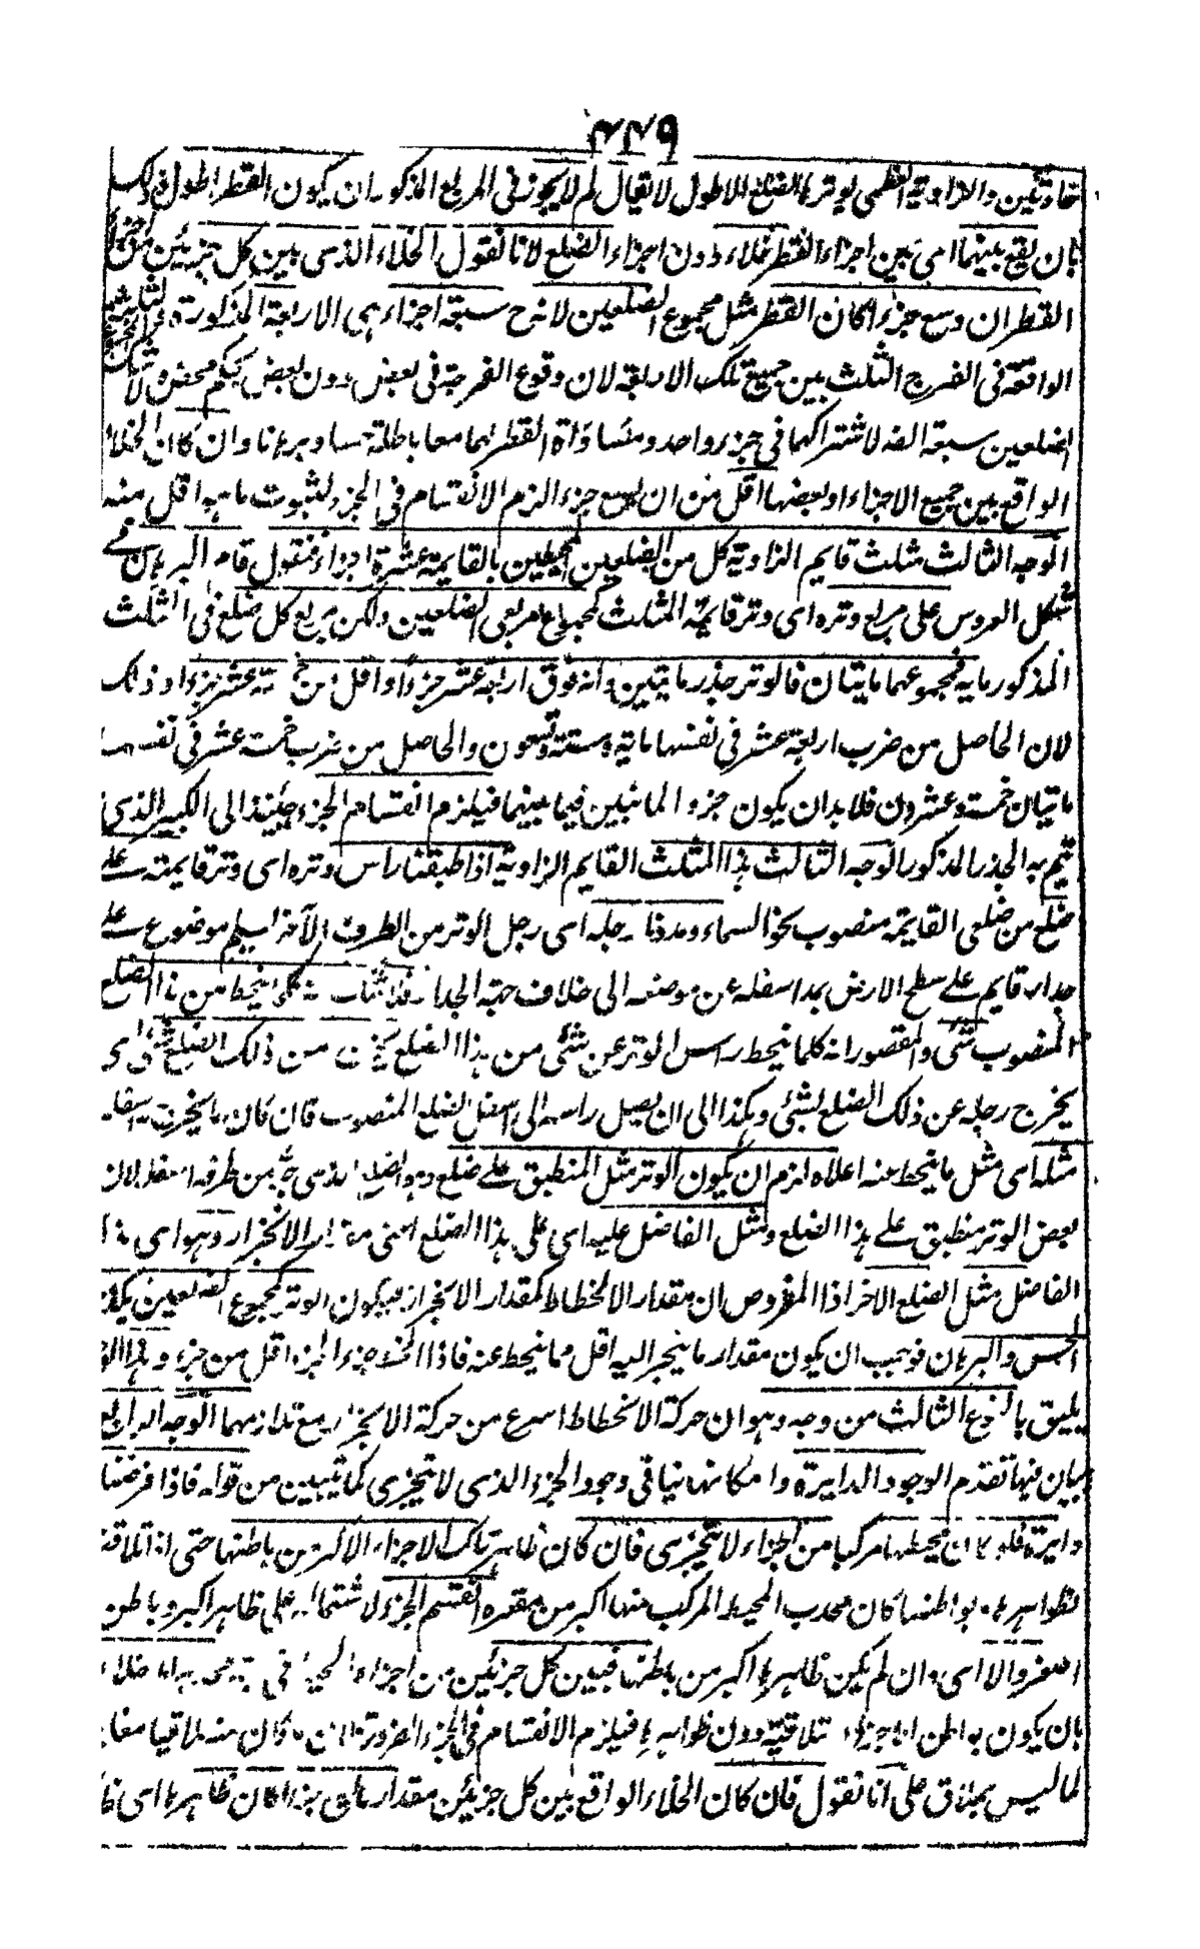 ٤٤٩
حادتين والزاوية العظمى يوترها الضلع الاطول لا يقال لم لا يجوز فى المربع المذكور ان يكون القطر اطول
بان يقع بينهما اى بين اجزاء القطر خلاء دون اجزاء الضلع لانا نقول الخلاء الذى بين كل جزئين من
القطر ان وسع جزءا كان القطر مثل مجموع الضلعين لانه ح سبعة اجزاء هى الاربعة المذكورة
الواقعة فى الفرج الثلث بين جميع تلك الاربعة لان وقوع الفرجة فى بعض دون بعض تحكم محض
الضلعين سبعة ايضا لاشتراكهما فى جزء واحد ومساواة القطر لهما معا باطلة حسا وبرهانا وان كان الخلاء
الواقع بين جميع الاجزاء او بعضها اقل من ان يسع جزءا لزم الانقسام فى الجزء لثبوت ما هو اقل منه
الوجه الثالث مثلث قايم الزاوية كل من الضلعين المحيطين بالقايمة عشرة اجزاء فنقول قام البرهان
شكل العروس على مربع وتره اى وتر قائمة المثلث كمجموع مربعى الضلعين ولكن مربع كل ضلع فى المثلث
المذكور مايه فمجموعهما مايتان فالوتر جذر مايتين وانه فوق اربعة عشر جزءا واقل من خمسة عشر جزءا وذلك
لان الحاصل من ضرب اربعة عشر فى نفسها ماية وستة وتسعون والحاصل من ضرب خمسة عشر فى نفسها
مايتان خمسة وعشرون فلا بد ان يكون جزو المائتين فيما بينهما فيلزم انقسام الجزء حينئذ الى الكسر الذى
يتم به الجذر المذكور الوجه الثالث هذا المثلث القايم الزاوية اذا طبقنا راس وتره اى وتر قايمته على
ضلع من ضلعى القايمة منصوب نحو السماء ومددنا رجله اى رجل الوتر من الطرف الآخر كسلم موضوع على
جدار قايم على سطح الارض يمد اسفله عن موضعه الى خلاف جهة الجدار فلا شك انه كلما ينحط من ذا الضلع
المنصوب شئ والمقصور انه كلما ينحط راس الوتر عن شئ من هذا الضلع من ذلك الضلع شئ اى
يخرج رجله عن ذلك الضلع بشئ وهكذا الى ان يصل راسه الى اسفل الضلع المنصوب فان كان ما يخرج به اسفله
مثله اى مثل ما ينحط عنه اعلاه لزم ان يكون الوتر مثل المنطبق على ضلع وهو الضلع الذى من طرفه اسفل لان
بعض الوتر منطبق على هذا الضلع ومثل الفاضل عليه اى على هذا الضلع اعنى مقدار الانجرار وهو اى هذا
الفاضل مثل الضلع الاخر اذا المفروض ان مقدار الانحطاط كمقدار الانجرار فيكون الوتر كمجموع الضلعين يكذبه
الحس والبرهان فوجب ان يكون مقدار ما ينجر اليه اقل مما ينحط عنه فاذا انحط جزءا انجر اقل من جزء وهذا الوجه
يليق بالنوع الثالث من وجه وهو ان حركة الانحطاط اسرع من حركة الانجرار مع تلازمهما الوجه الرابع
بيان فيها تقدم الوجود الدايرة وامكانها ينافى وجود الجزء الذى لا يتجزى كما يتبين من قوله فاذا فرضنا
دايرة فلو كان محيطها مركبا من اجزاء لا يتجزى فان كان ظاهر تلك الاجزاء الاكبر من باطنها حتى اذا تلاقت
ظواهرها بواطنها كان محدب المحيط المركب منها اكبر من مقعره انقسم الجزء لاشتماله على ظاهر اكبر وباطن
اصغر والا اى وان لم يكن ظاهرها اكبر من باطنها فبين كل جزئين من اجزاء المحيط فى خلاء
بان يكون بواطن الاجزاء متلاقية دون ظواهرها فيلزم الانقسام فى الجزء ضرورة ان ما كان منه ملاقيا مغاير
لما ليس بملاق على انا نقول فان كان الخلاء الواقع بين كل جزئين مقدار ما يسع جزءا كان ظاهرها اى